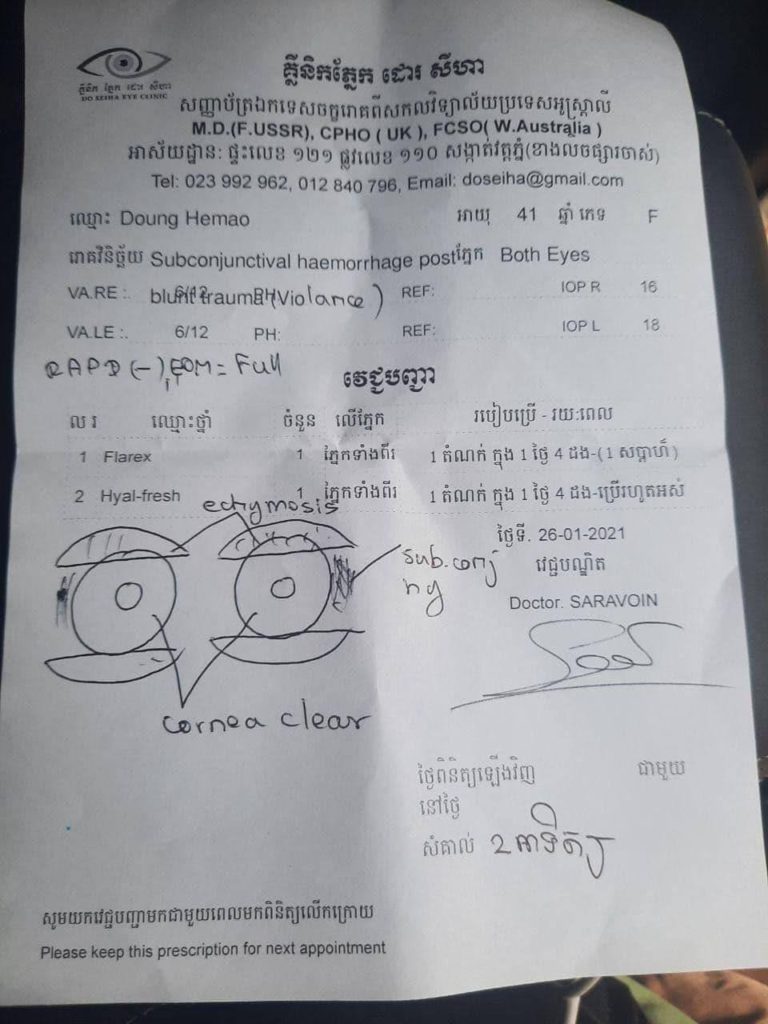 គ្លីនិកភ្នែក ដោរ សីហា
គ្លីនិក ភ្នែក ដោរ សីហា
DO SEIHA EYE CLINIC
សញ្ញាប័ត្រឯកទេសចក្ខុរោគពីសកលវិទ្យាល័យប្រទេសអូស្ត្រាលី
M.D.(F.USSR), CPHO ( UK ), FCSO( W.Australia )
អាស័យដ្ឋានៈ ផ្ទះលេខ ១២១ ផ្លូវលេខ ១១០ សង្កាត់វត្តភ្នំ(ខាងលចផ្សារចាស់)
Tel: 023 992 962, 012 840 796, Email: doseiha@gmail.com
ឈ្មោះ Doung Hemao អាយុ 41 ឆ្នាំ ភេទ F
រោគវិនិច្ឆ័យ Subconjunctival haemorrhage post ភ្នែក Both Eyes
VA.RE :. 6/12 PH blunt trauma (Violance) REF: IOP R 16
VA.LE :. 6/12 PH: REF: IOP L 18
RAPD (-), EOM = Full
វេជ្ជបញ្ជា
ល រ ឈ្មោះថ្នាំ ចំនួន លើភ្នែក របៀបប្រើ - រយៈពេល
1 Flarex 1 ភ្នែកទាំងពីរ 1 តំណក់ ក្នុង 1 ថ្ងៃ 4 ដង-(1 សប្តាហ៍)
2 Hyal-fresh 1 ភ្នែកទាំងពីរ 1 តំណក់ ក្នុង 1 ថ្ងៃ 4 ដង-ប្រើរហូតអស់
echymosis
ថ្ងៃទី. 26-01-2021
sub.conj
hg
វេជ្ជបណ្ឌិត
Doctor. SARAVOIN
cornea clear
ថ្ងៃពិនិត្យឡើងវិញ ជាមួយ
នៅថ្ងៃ
សំគាល់ ២អាទិត្យ
សូមយកវេជ្ជបញ្ជាមកជាមួយពេលមកពិនិត្យលើកក្រោយ
Please keep this prescription for next appointment